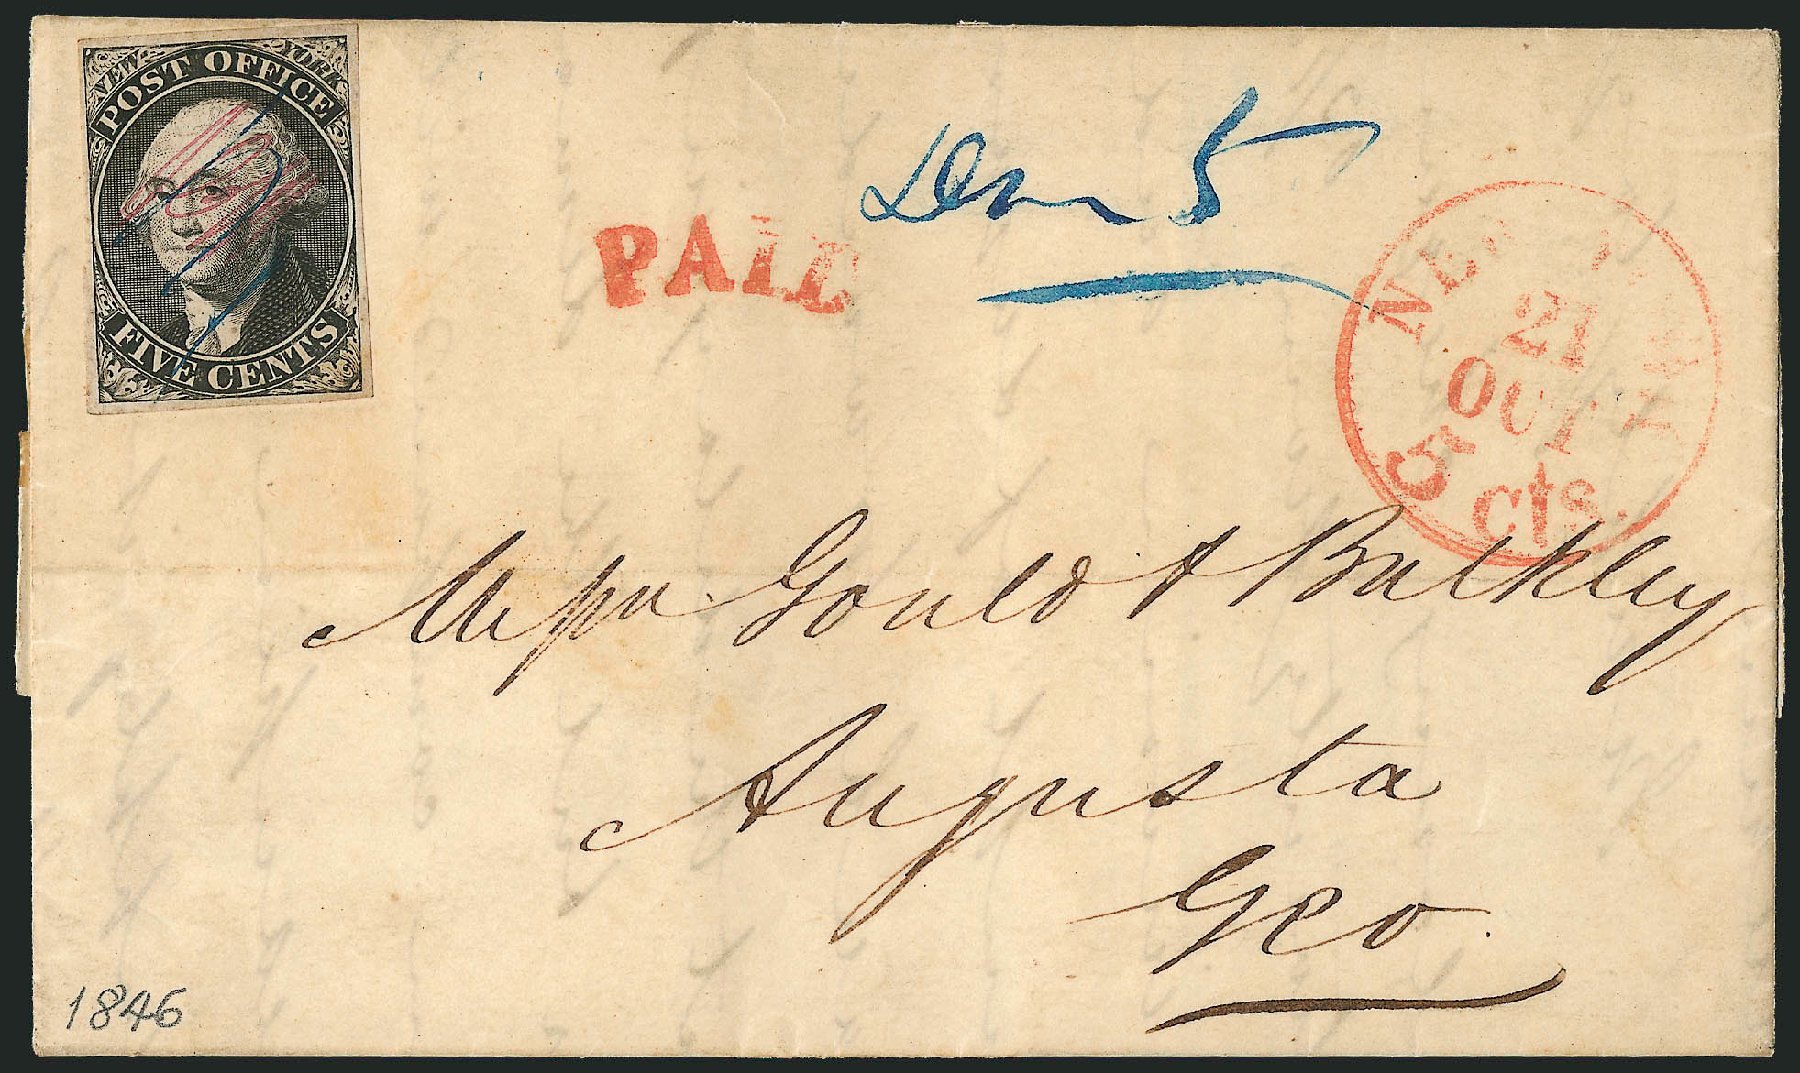 NEW YORK
POST OFFICE
FIVE CENTS
PAID
5
NEW YORK
21
OCT
5 cts.
Gould & Bulkley
Augusta
Geo
1846